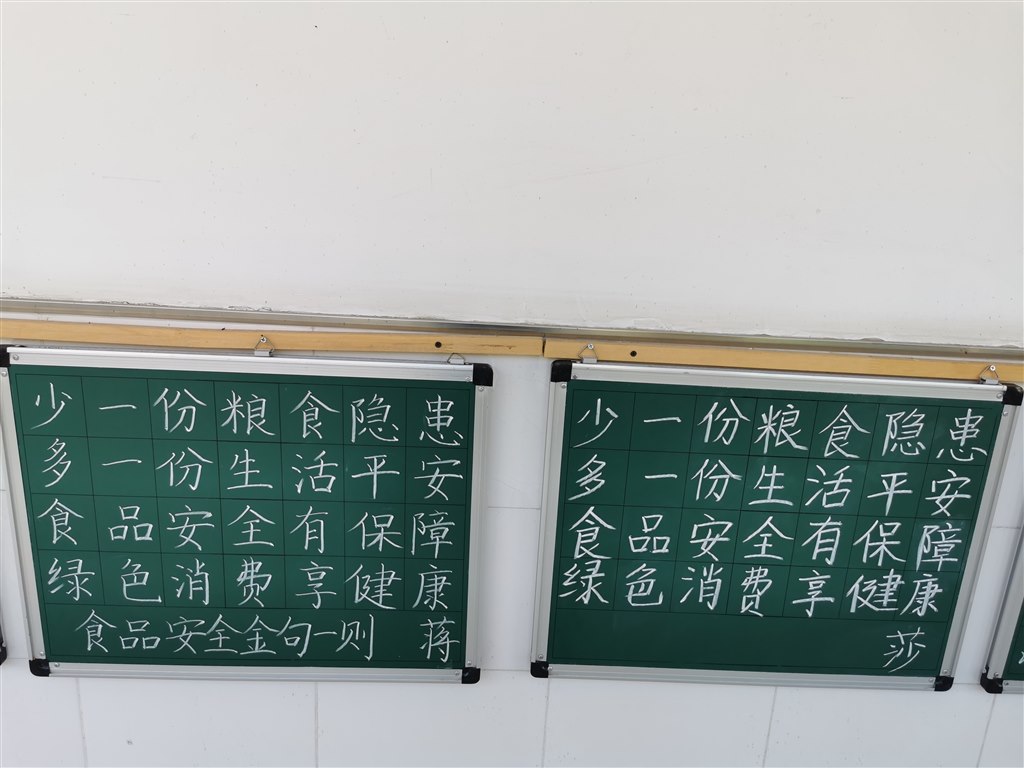 少一份粮食隐患
多一份生活平安
食品安全有保障
绿色消费享健康
食品安全金句一则 蒋
少一份粮食隐患
多一份生活平安
食品安全有保障
绿色消费享健康
莎